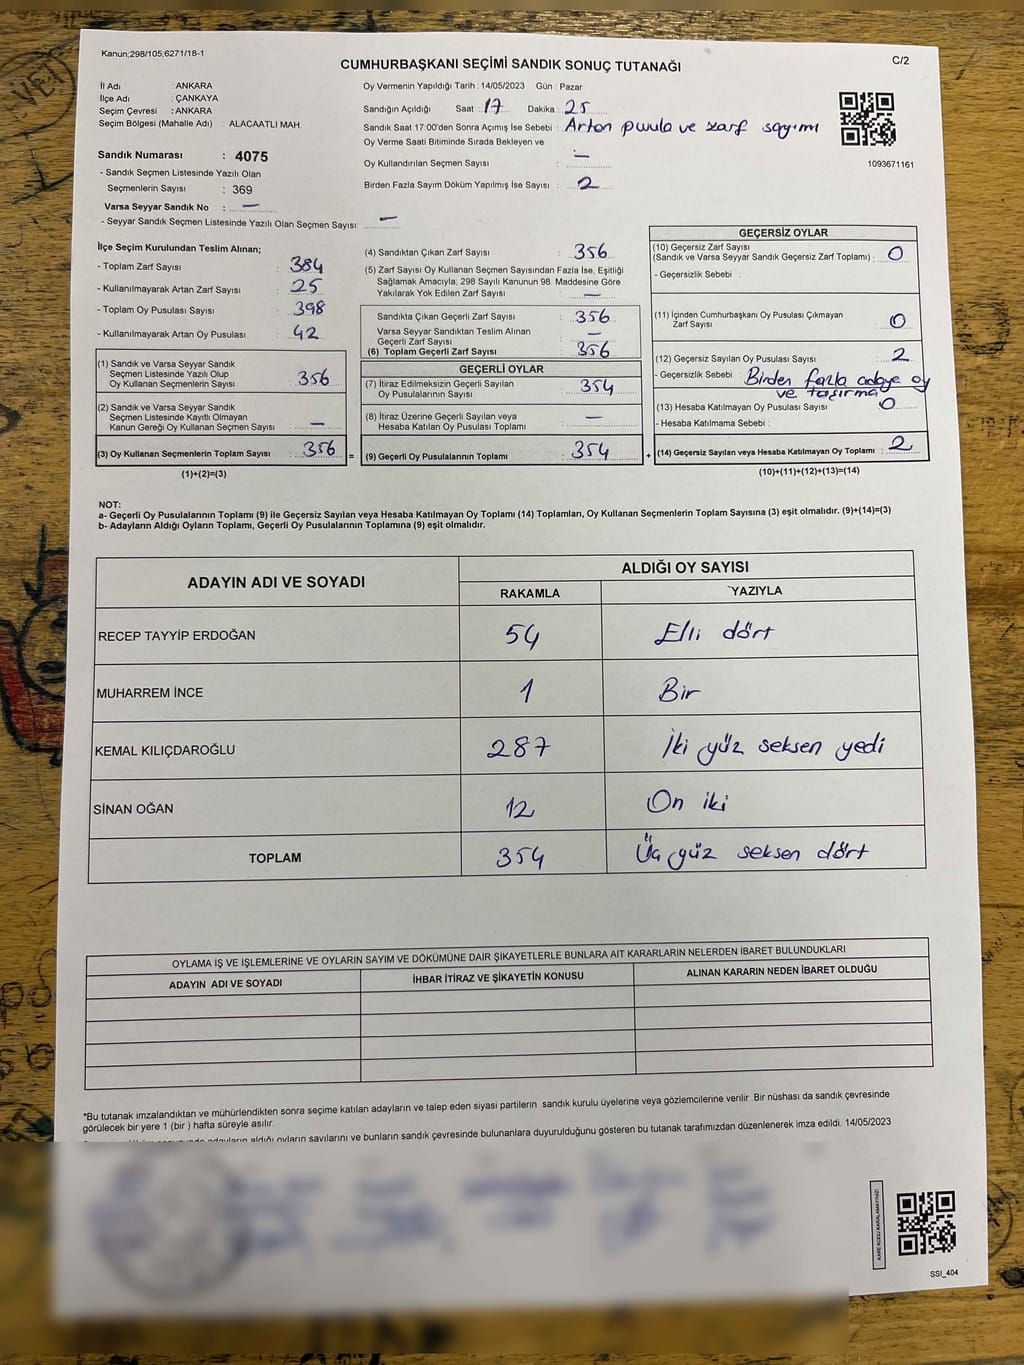 Kanun;298/105;6271/18-1
CUMHURBAŞKANI SEÇİMİ SANDIK SONUÇ TUTANAĞI
C/2
İl Adı : ANKARA
İlçe Adı : ÇANKAYA
Seçim Çevresi : ANKARA
Seçim Bölgesi (Mahalle Adı) : ALACAATLI MAH.
Sandık Numarası : 4075
- Sandık Seçmen Listesinde Yazılı Olan
Seçmenlerin Sayısı : 369
Varsa Seyyar Sandık No : —
- Seyyar Sandık Seçmen Listesinde Yazılı Olan Seçmen Sayısı: —
Oy Vermenin Yapıldığı Tarih : 14/05/2023 Gün : Pazar
Sandığın Açıldığı Saat : 17 Dakika : 25
Sandık Saat 17:00'den Sonra Açımış İse Sebebi : Artan pusula ve zarf sayımı
Oy Verme Saati Bitiminde Sırada Bekleyen ve
Oy Kullandırılan Seçmen Sayısı : —
Birden Fazla Sayım Döküm Yapılmış İse Sayısı : 2
1093671161
İlçe Seçim Kurulundan Teslim Alınan;
- Toplam Zarf Sayısı : 384
- Kullanılmayarak Artan Zarf Sayısı : 25
- Toplam Oy Pusulası Sayısı : 398
- Kullanılmayarak Artan Oy Pusulası : 42
(1) Sandık ve Varsa Seyyar Sandık
Seçmen Listesinde Yazılı Olup
Oy Kullanan Seçmenlerin Sayısı : 356
(2) Sandık ve Varsa Seyyar Sandık
Seçmen Listesinde Kayıtlı Olmayan
Kanun Gereği Oy Kullanan Seçmen Sayısı : —
(3) Oy Kullanan Seçmenlerin Toplam Sayısı : 356
(1)+(2)=(3)
(4) Sandıktan Çıkan Zarf Sayısı : 356
(5) Zarf Sayısı Oy Kullanan Seçmen Sayısından Fazla İse, Eşitliği
Sağlamak Amacıyla; 298 Sayılı Kanunun 98. Maddesine Göre
Yakılarak Yok Edilen Zarf Sayısı : —
Sandıkta Çıkan Geçerli Zarf Sayısı : 356
Varsa Seyyar Sandıktan Teslim Alınan
Geçerli Zarf Sayısı : —
(6) Toplam Geçerli Zarf Sayısı : 356
GEÇERLİ OYLAR
(7) İtiraz Edilmeksizin Geçerli Sayılan
Oy Pusulalarının Sayısı : 354
(8) İtiraz Üzerine Geçerli Sayılan veya
Hesaba Katılan Oy Pusulası Toplamı : —
= (9) Geçerli Oy Pusulalarının Toplamı : 354
GEÇERSİZ OYLAR
(10) Geçersiz Zarf Sayısı
(Sandık ve Varsa Seyyar Sandık Geçersiz Zarf Toplamı) : 0
- Geçersizlik Sebebi :
(11) İçinden Cumhurbaşkanı Oy Pusulası Çıkmayan
Zarf Sayısı : 0
(12) Geçersiz Sayılan Oy Pusulası Sayısı : 2
- Geçersizlik Sebebi : Birden fazla adaya oy
ve taşırma
(13) Hesaba Katılmayan Oy Pusulası Sayısı : 0
- Hesaba Katılmama Sebebi :
+ (14) Geçersiz Sayılan veya Hesaba Katılmayan Oy Toplamı : 2
(10)+(11)+(12)+(13)=(14)
NOT:
a- Geçerli Oy Pusulalarının Toplamı (9) ile Geçersiz Sayılan veya Hesaba Katılmayan Oy Toplamı (14) Toplamları, Oy Kullanan Seçmenlerin Toplam Sayısına (3) eşit olmalıdır. (9)+(14)=(3)
b- Adayların Aldığı Oyların Toplamı, Geçerli Oy Pusulalarının Toplamına (9) eşit olmalıdır.
ADAYIN ADI VE SOYADI
ALDIĞI OY SAYISI
RAKAMLA
YAZIYLA
RECEP TAYYİP ERDOĞAN 54 Elli dört
MUHARREM İNCE 1 Bir
KEMAL KILIÇDAROĞLU 287 İki yüz seksen yedi
SİNAN OĞAN 12 On iki
TOPLAM 354 Üç yüz seksen dört
OYLAMA İŞ VE İŞLEMLERİNE VE OYLARIN SAYIM VE DÖKÜMÜNE DAİR ŞİKAYETLERLE BUNLARA AİT KARARLARIN NELERDEN İBARET BULUNDUKLARI
ADAYIN ADI VE SOYADI
İHBAR İTİRAZ VE ŞİKAYETİN KONUSU
ALINAN KARARIN NEDEN İBARET OLDUĞU
*Bu tutanak imzalandıktan ve mühürlendikten sonra seçime katılan adayların ve talep eden siyasi partilerin sandık kurulu üyelerine veya gözlemcilerine verilir .Bir nüshası da sandık çevresinde
görülecek bir yere 1 (bir ) hafta süreyle asılır.
adayların aldığı oyların sayılarını ve bunların sandık çevresinde bulunanlara duyurulduğunu gösteren bu tutanak tarafımızdan düzenlenerek imza edildi. 14/05/2023
KARE KODU KARALAMAYINIZ!
SSİ_404